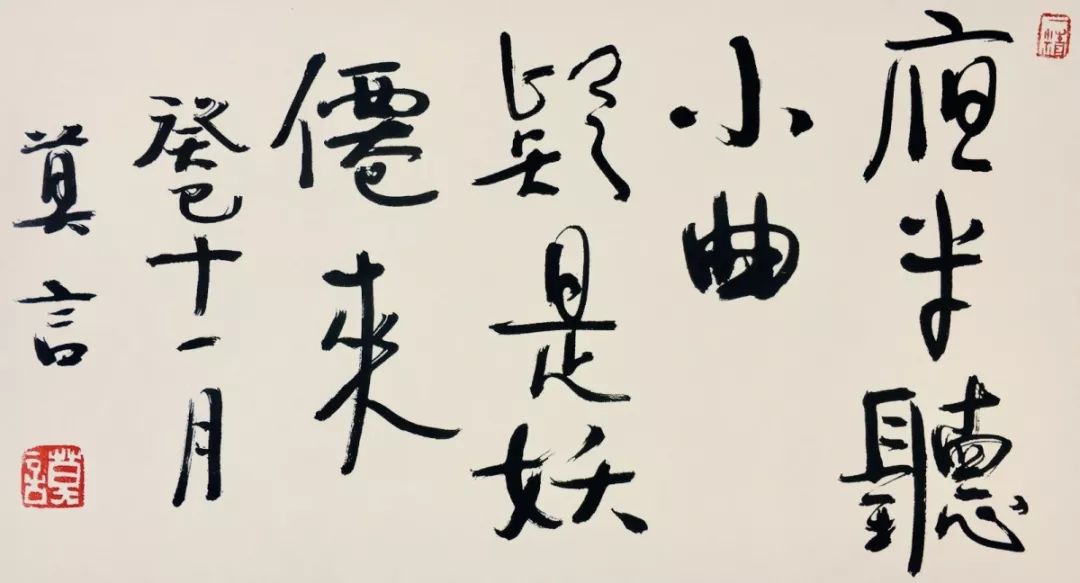 亱半聽
小曲
疑是妖
僊來
癸巳十一月
莫言
莫言